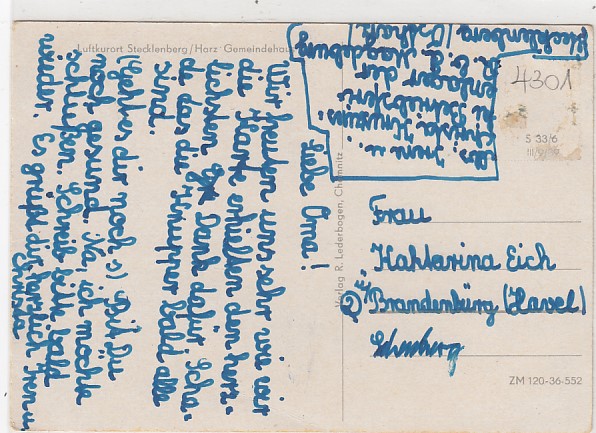 Luftkurort Stecklenberg/Harz Gemeindehaus
Liebe Oma!
Wir freuten uns sehr wie wir
die Karte erhielten den herz-
lichsten Dank dafür Scha-
de das die Knupper bald alle
sind.
Geht es dir noch so Bist Du
noch gesund. Na, ich möchte
schließen. Schreib bitte bald
wieder. Es grüßt dich herzlich
Christa
Christa
lager der
Magdeburg
Stecklenberg (Ostharz)
4301
S 33/6
Verlag R. Lederbogen, Chemnitz
Frau
Kahtarina Eich
Brandenbürg (Havel)
ZM 120-36-552